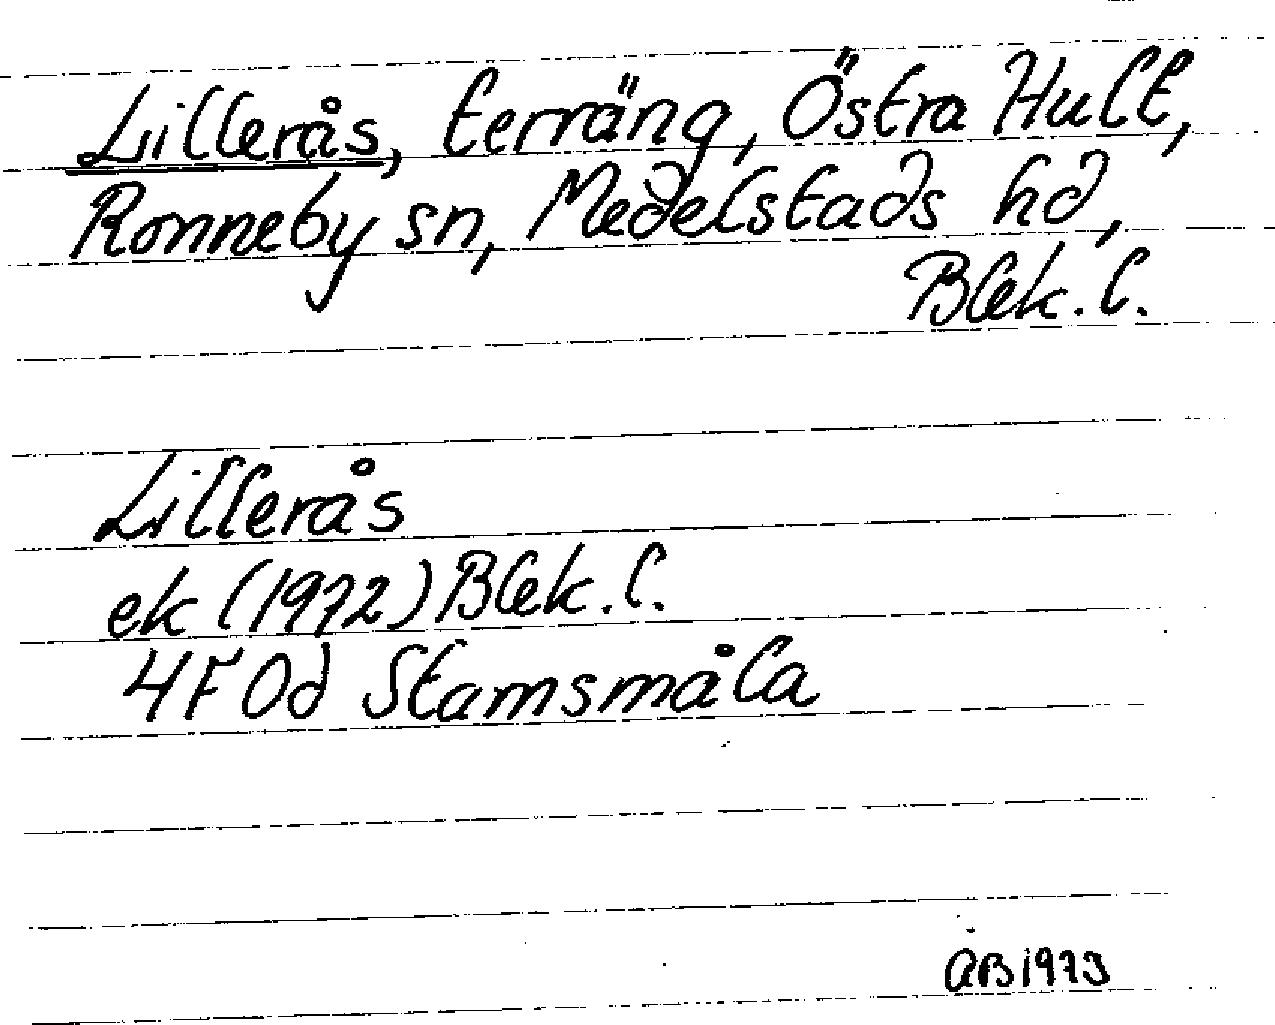 Lillerås, terräng, Östra Hult,
Ronneby sn, Medelstads hd,
Blek. l.
Lillerås
ek (1972) Blek. l.
4F 0d Stamsmåla
ÅB 1973